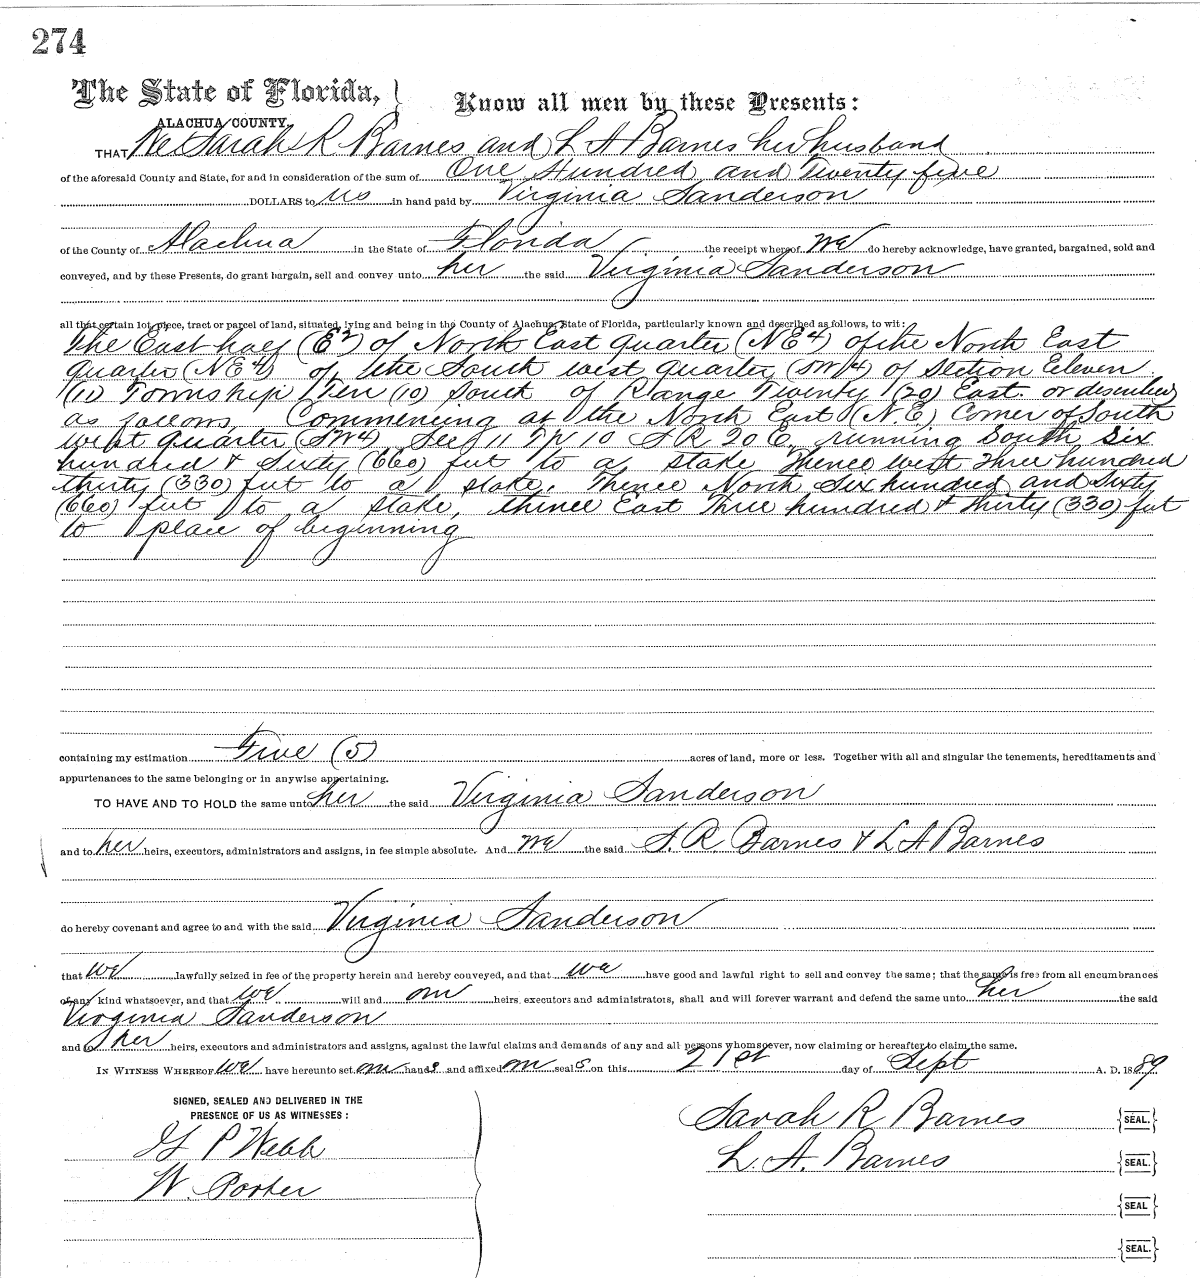 274
The State of Florida, }
Know all men by these Presents:
ALACHUA COUNTY.
THAT We Sarah R Barnes and L A Barnes her husband
of the aforesaid County and State, for and in consideration of the sum of One Hundred and Twenty five
DOLLARS to us in hand paid by Virginia Sanderson
of the County of Alachua in the State of Florida the receipt whereof we do hereby acknowledge, have granted, bargained, sold and
conveyed, and by these Presents, do grant bargain, sell and convey unto her the said Virginia Sanderson
all that certain lot, piece, tract or parcel of land, situated, lying and being in the County of Alachua, State of Florida, particularly known and described as follows, to wit:
The East half (E2) of North East quarter (NE4) of the North East
quarter (NE4) of the South west quarter (SW4) of Section Eleven
(11) Township Ten (10) South of Range Twenty (20) East. or described
as follows, Commencing at the North East (N.E) Corner of South
west quarter (SW4) Sec 11 Tp 10 S R 20 E, running South Six
hundred & Sixty (660) feet to a stake thence west Three hundred
thirty (330) feet to a stake, thence North Six hundred and Sixty
(660) feet to a stake, thence East Three hundred & thirty (330) feet
to place of beginning
containing my estimation Five (5) acres of land, more or less. Together with all and singular the tenements, hereditaments and
appurtenances to the same belonging or in anywise appertaining.
TO HAVE AND TO HOLD the same unto her the said Virginia Sanderson
and to her heirs, executors, administrators and assigns, in fee simple absolute. And we the said S. R. Barnes & L A Barnes
do hereby covenant and agree to and with the said Virginia Sanderson
that we lawfully seized in fee of the property herein and hereby conveyed, and that we have good and lawful right to sell and convey the same; that the same is free from all encumbrances
of any kind whatsoever, and that we will and our heirs, executors and administrators, shall and will forever warrant and defend the same unto her the said
Virginia Sanderson
and to her heirs, executors and administrators and assigns, against the lawful claims and demands of any and all persons whomsoever, now claiming or hereafter to claim the same.
IN WITNESS WHEREOF we have hereunto set our hands and affixed our seals on this 21st day of Sept A. D. 1889
SIGNED, SEALED AND DELIVERED IN THE
PRESENCE OF US AS WITNESSES:
G P Webb
W. Porter
Sarah R Barnes {SEAL.}
L. A. Barnes {SEAL.}
{SEAL}
{SEAL.}